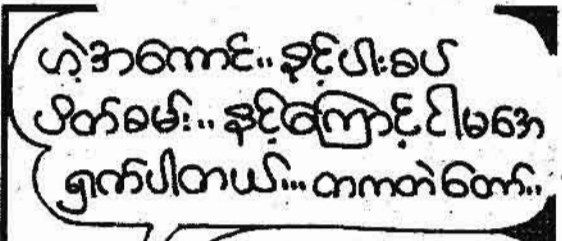 ဟဲ့အကောင်..နင့်ပါးစပ်
ပိတ်စမ်း..နင့်ကြောင့်ငါမအေ
ရှက်ပါတယ်...တကတဲတော်..